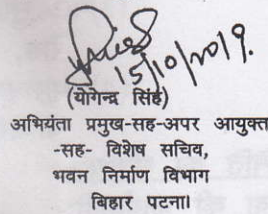 15/10/2019.
(योगेन्द्र सिंह)
अभियंता प्रमुख-सह-अपर आयुक्त
-सह- विशेष सचिव,
भवन निर्माण विभाग
बिहार पटना।